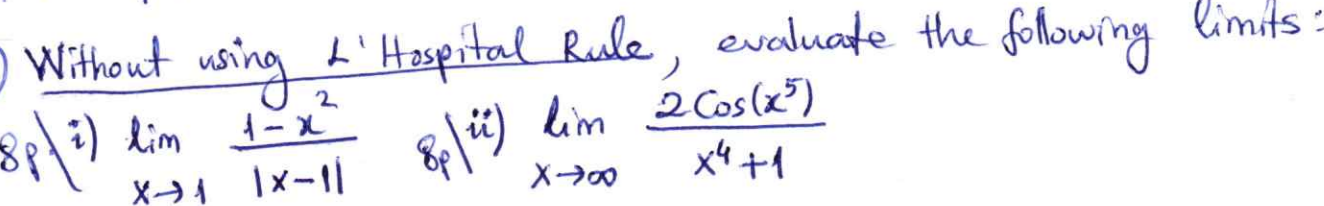 ) Without using L'Hospital Rule, evaluate the following limits:
8p\ i) lim x→1 (1-x²)/|x-1| 8p\ ii) lim x→∞ (2Cos(x⁵))/(x⁴+1)